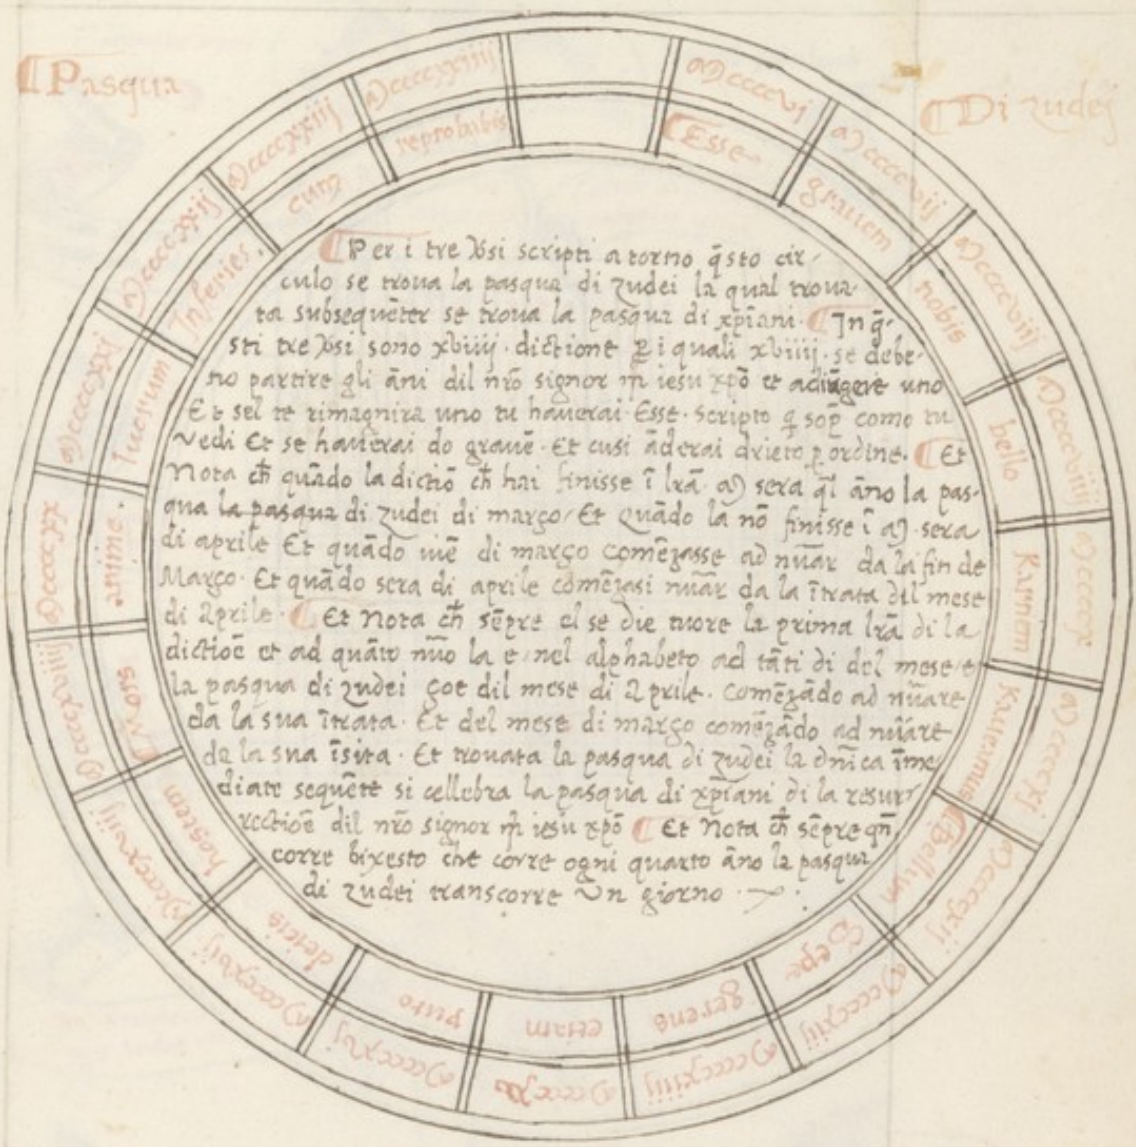 ¶ Pasqua
¶ Di zudej
Mccccvi
Mccccvij
Mccccviij
Mccccviiij
Mccccx
Mccccxj
Mccccxij
Mccccxiij
Mccccxiiij
Mccccxv
Mccccxvj
Mccccxvij
Mccccxviij
Mccccxviiij
Mccccxx
Mccccxxj
Mccccxxij
Mccccxxiij
Mccccxxiiij
¶ Esse
grauem
nobis
bello
Karnem
Kruciamus
¶ Bellum
Sepe
gerens
etiam
puro
deicis
hostem
¶ Mors
anime
luorum
Inferies
cum
reprobabis
¶ Per i tre v̄si scripti a torno q̄sto cir-
culo se troua la pasqua di zudei la qual troua-
ta subsequēter se troua la pasqua di xp̄iani. ¶ In q̄-
sti tre v̄si sono xviiij. dictione ꝑ i quali xviiij. se debe-
no partire gli āni dil nr̄o signor m̄ iesu xp̄o et adiūgere uno
Et sel te rimagnira uno tu hauerai. Esse. scripto q̄ sop̄ como tu
vedi Et se hauerai do grauē. Et cusi āderai drieto ꝑ ordine. ¶ Et
Nota ch̄ quādo la dictiō ch̄ hai finisse ī lr̄a. M sera q̄l āno la pas-
qua la pasqua di zudei di março/ Et quādo la nō finisse ī M. sera
di aprile Et quādo uiē di março comēzasse ad nūar da la fin de
Março. Et quādo sera di aprile comēzasi nūar da la ītrata dil mese
di aprile. ¶ Et Nota ch̄ sēpre el se die tuore la prima lr̄a di la
dictiōe et ad quāto nūo la e/ nel alphabeto ad tāti di del mese/ e
la pasqua di zudei çoe dil mese di aprile. comēzādo ad nūare
da la sua ītrata. Et del mese di março comēzādo ad nūare
da la sua īsita. Et trouata la pasqua di zudei la dn̄ica īme
diate sequēte si cellebra la pasqua di xp̄iani di la resur
rectiōe dil nr̄o signor m̄ iesu xp̄o ¶ Et Nota ch̄ sēpre qn̄
corre bixesto che corre ogni quarto āno la pasqua
di zudei transcorre Vn giorno.